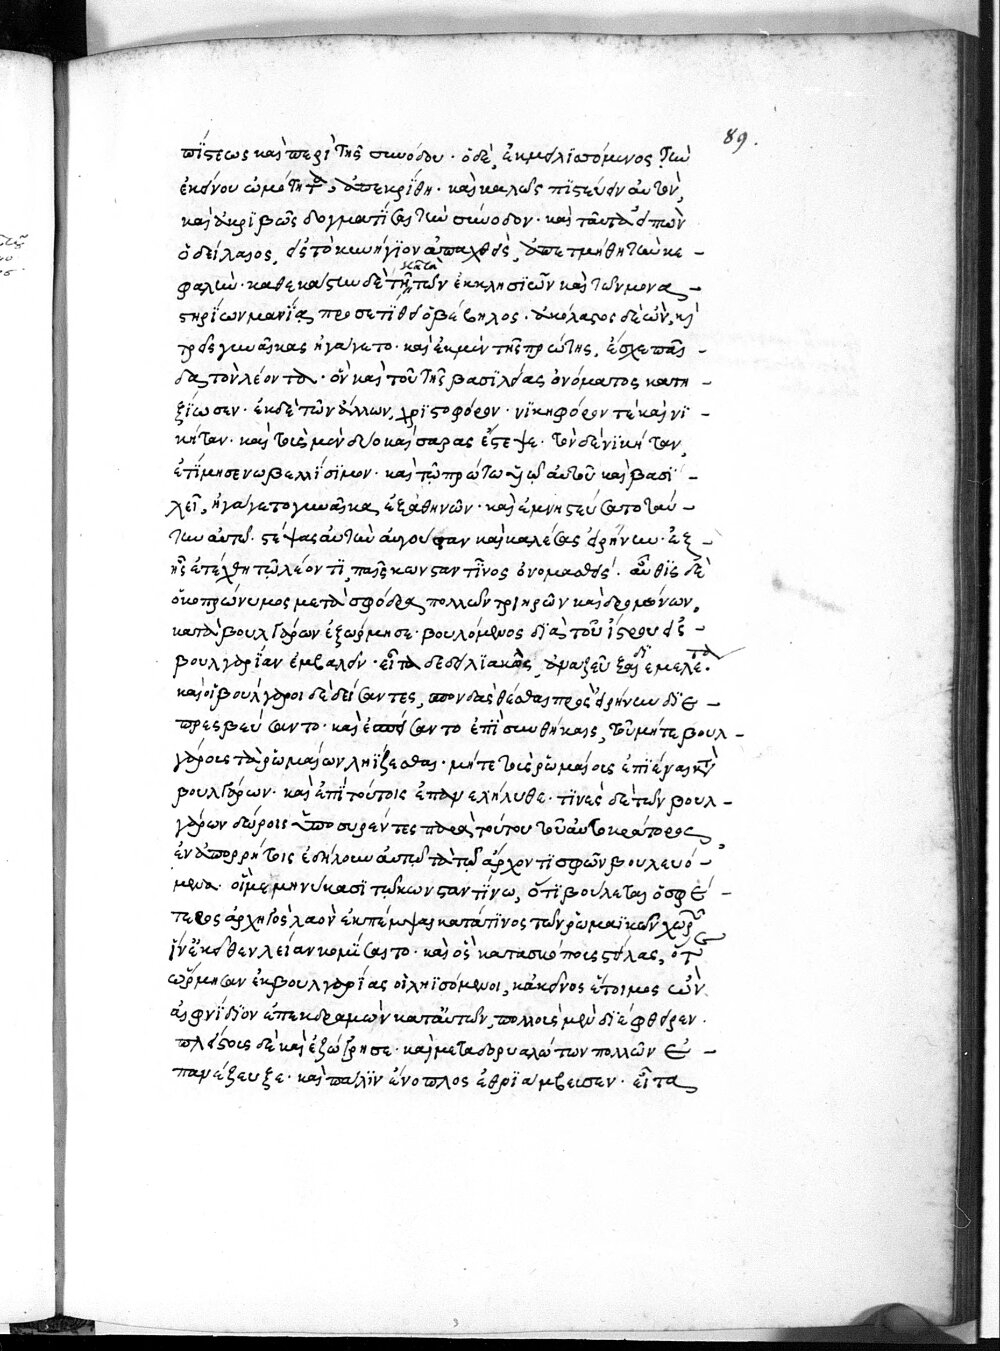 89.
πίστεως καὶ περὶ τῆς συνόδου· ὁ δὲ, ἐκμειλισσόμενος τὴν
ἐκείνου ὠμότητα, ἀπεκρίθη· καὶ καλῶς πιστεύειν αὐτὸν,
καὶ ἀκριβῶς δογματίσαι τὴν σύνοδον· καὶ ταῦτα εἰπὼν
ὁ δείλαιος, εἰς τὸ κυνήγιον ἀπαχθεὶς, ἀπετμήθη τὴν κε-
φαλήν· καθεκάστην δὲ τῇ κατὰ τῶν ἐκκλησιῶν καὶ τῶν μονα-
στηρίων μανίᾳ προσετίθει ὁ βέβηλος· ἀκόλαστος δὲ ὢν, καὶ
τρεῖς γυναῖκας ἠγάγετο· καὶ ἐκ μὲν τῆς πρώτης, ἔσχε παῖ-
δα τὸν λέοντα· ὃν καὶ τοῦ τῆς βασιλείας ὀνόματος κατη-
ξίωσεν· ἐκ δὲ τῶν ἄλλων, χριστοφόρον· νικηφόρον τὲ καὶ νι-
κήταν· καὶ τοὺς μὲν δύο καίσαρας ἔστεψε· τὸν δὲ νικήταν,
ἐτίμησε νωβελλίσιμον· καὶ τῷ πρώτῳ υἱῷ αὐτοῦ καὶ βασι-
λεῖ, ἠγάγετο γυναῖκα ἐξ ἀθηνῶν· καὶ ἐμνηστεύσατο ταύ-
την αὐτῷ· στέψας αὐτὴν αὐγούσταν καὶ καλέσας εἰρήνην· ἐξ
ἧς ἐτέχθη τῷ λέοντι, παῖς κωνσταντῖνος ὀνομασθείς· αὖθις δὲ
ὁ κοπρώνυμος μετὰ σφόδρα πολλῶν τριηρῶν καὶ δρομώνων,
κατὰ βουλγάρων ἐξώρμησε· βουλόμενος διὰ τοῦ ἴστρου εἰς
βουλγαρίαν ἐμβαλεῖν· εἶτα δεδειλιακὼς, ἀναζεῦξαι διεμελέτα·
καὶ οἱ βούλγαροι δὲ δείσαντες, σπονδὰς θέσθαι πρὸς εἰρήνην διε-
πρεσβεύσαντο· καὶ ἐσπείσαντο ἐπὶ συνθήκαις, τοῦ μήτε βουλ-
γάροις τὰ ῥωμαίων ληίζεσθαι· μήτε τοὺς ῥωμαίοις ἐπιέναι κατὰ
βουλγάρων· καὶ ἐπὶ τούτοις ἐπανελήλυθε· τινὲς δὲ τῶν βουλ-
γάρων δώροις ὑποσυρέντες παρὰ τούτου τοῦ αὐτοκράτορος,
ἐν ἀπορρήτοις ἐδήλουν αὐτῷ τὰ τῷ ἄρχοντι σφῶν βουλευό-
μενα· οἵ με μηνύκασι τῷ κωνσταντίνῳ, ὅτι βούλεται ὁ σφέ-
τερος ἀρχηγὸς λαὸν ἐκπέμψαι κατά τινος τῶν ῥωμαϊκῶν χωρῶν
ἵν' ἐκεῖθεν λείαν κομίσαιτο· καὶ ὃς κατασκόπους στείλας, ὅτε
ὥρμησαν ἐκ βουλγαρίας οἱ ληισόμενοι, κἀκεῖνος ἕτοιμος ὢν
αἰφνίδιον ἐπεκδραμὼν κατ' αὐτῶν, πολλοὺς μὲν διέφθειρεν·
πλείους δὲ καὶ ἐζώγρησε· καὶ μετὰ δορυαλώτων πολλῶν ἐ-
πανέζευξε· καὶ πάλιν ἔνοπλος ἐθριάμβευσεν· εἶτα